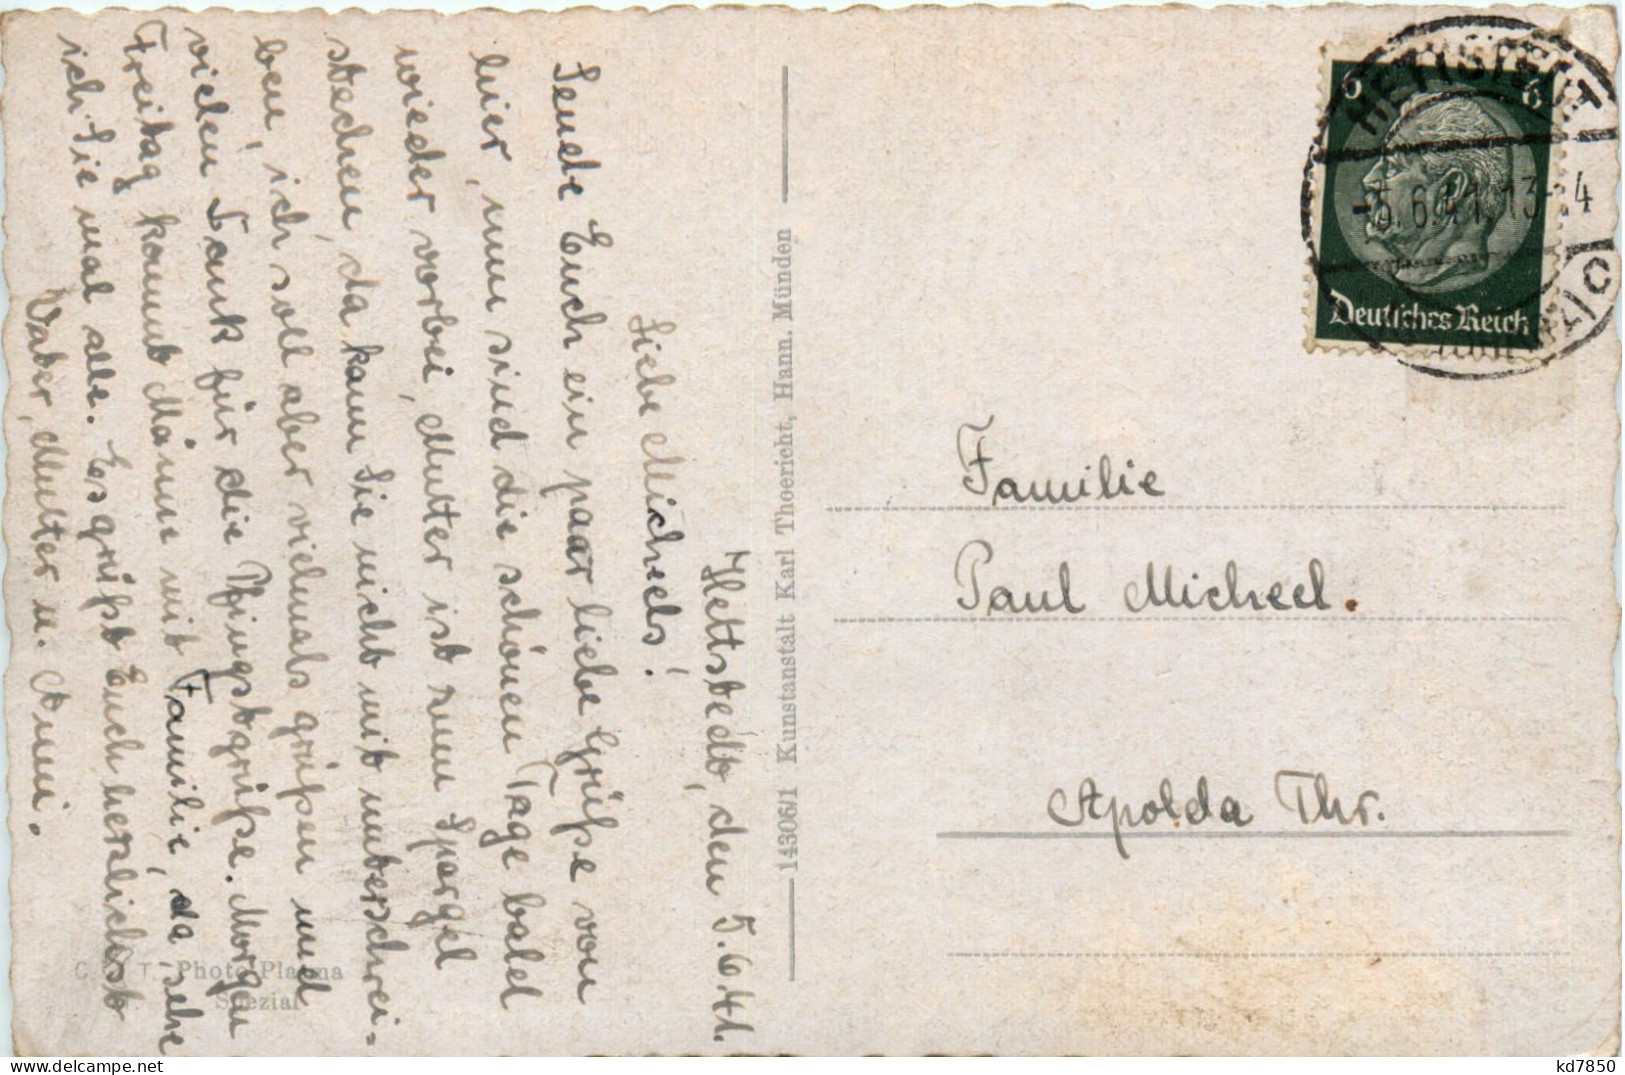 Hettstedt, den 5.6.41.
Liebe Micheels!
Sende Euch ein paar liebe Grüße von
hier, nun sind die schönen Tage bald
wieder vorbei, Mutter ist zum Spargel
stechen, da kann Sie nicht mit unterschrei=
ben, ich soll aber vielmals grüßen und
vielen Dank für die Pfingstgrüße. Morgen
Freitag kommt Männe mit Familie, da sehe
ich Sie mal alle. Es grüßt Euch herzlichst
Vater, Mutter u. Anni.
C. T. Photo Plasma
Spezial
14306/1 Kunstanstalt Karl Thoericht, Hann. Münden
HETTSTEDT
-5.6.41.13-14
(SÜDHARZ) C
6 6
Deutsches Reich
Familie
Paul Micheel.
Apolda Thr.
kd7850